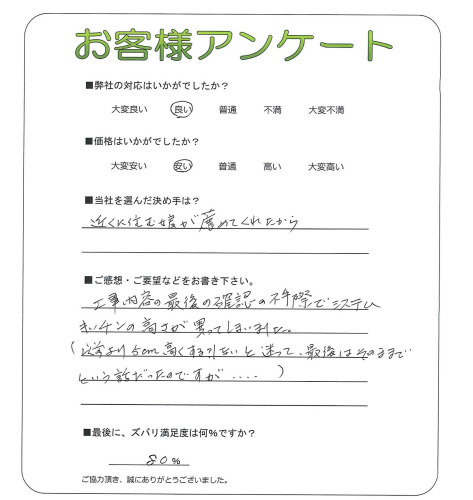 お客様アンケート
■弊社の対応はいかがでしたか？
大変良い 良い 普通 不満 大変不満
■価格はいかがでしたか？
大変安い 安い 普通 高い 大変高い
■当社を選んだ決め手は？
近くに住む娘が薦めてくれたから
■ご感想・ご要望などをお書き下さい。
工事内容の最後の確認の不手際でシステム
キッチンの高さが異ってしまいました。
より5cm高くする 迷って、最後はそのままで
という話だったのですが.....)
■最後に、ズバリ満足度は何%ですか？
80%
ご協力頂き、誠にありがとうございました。